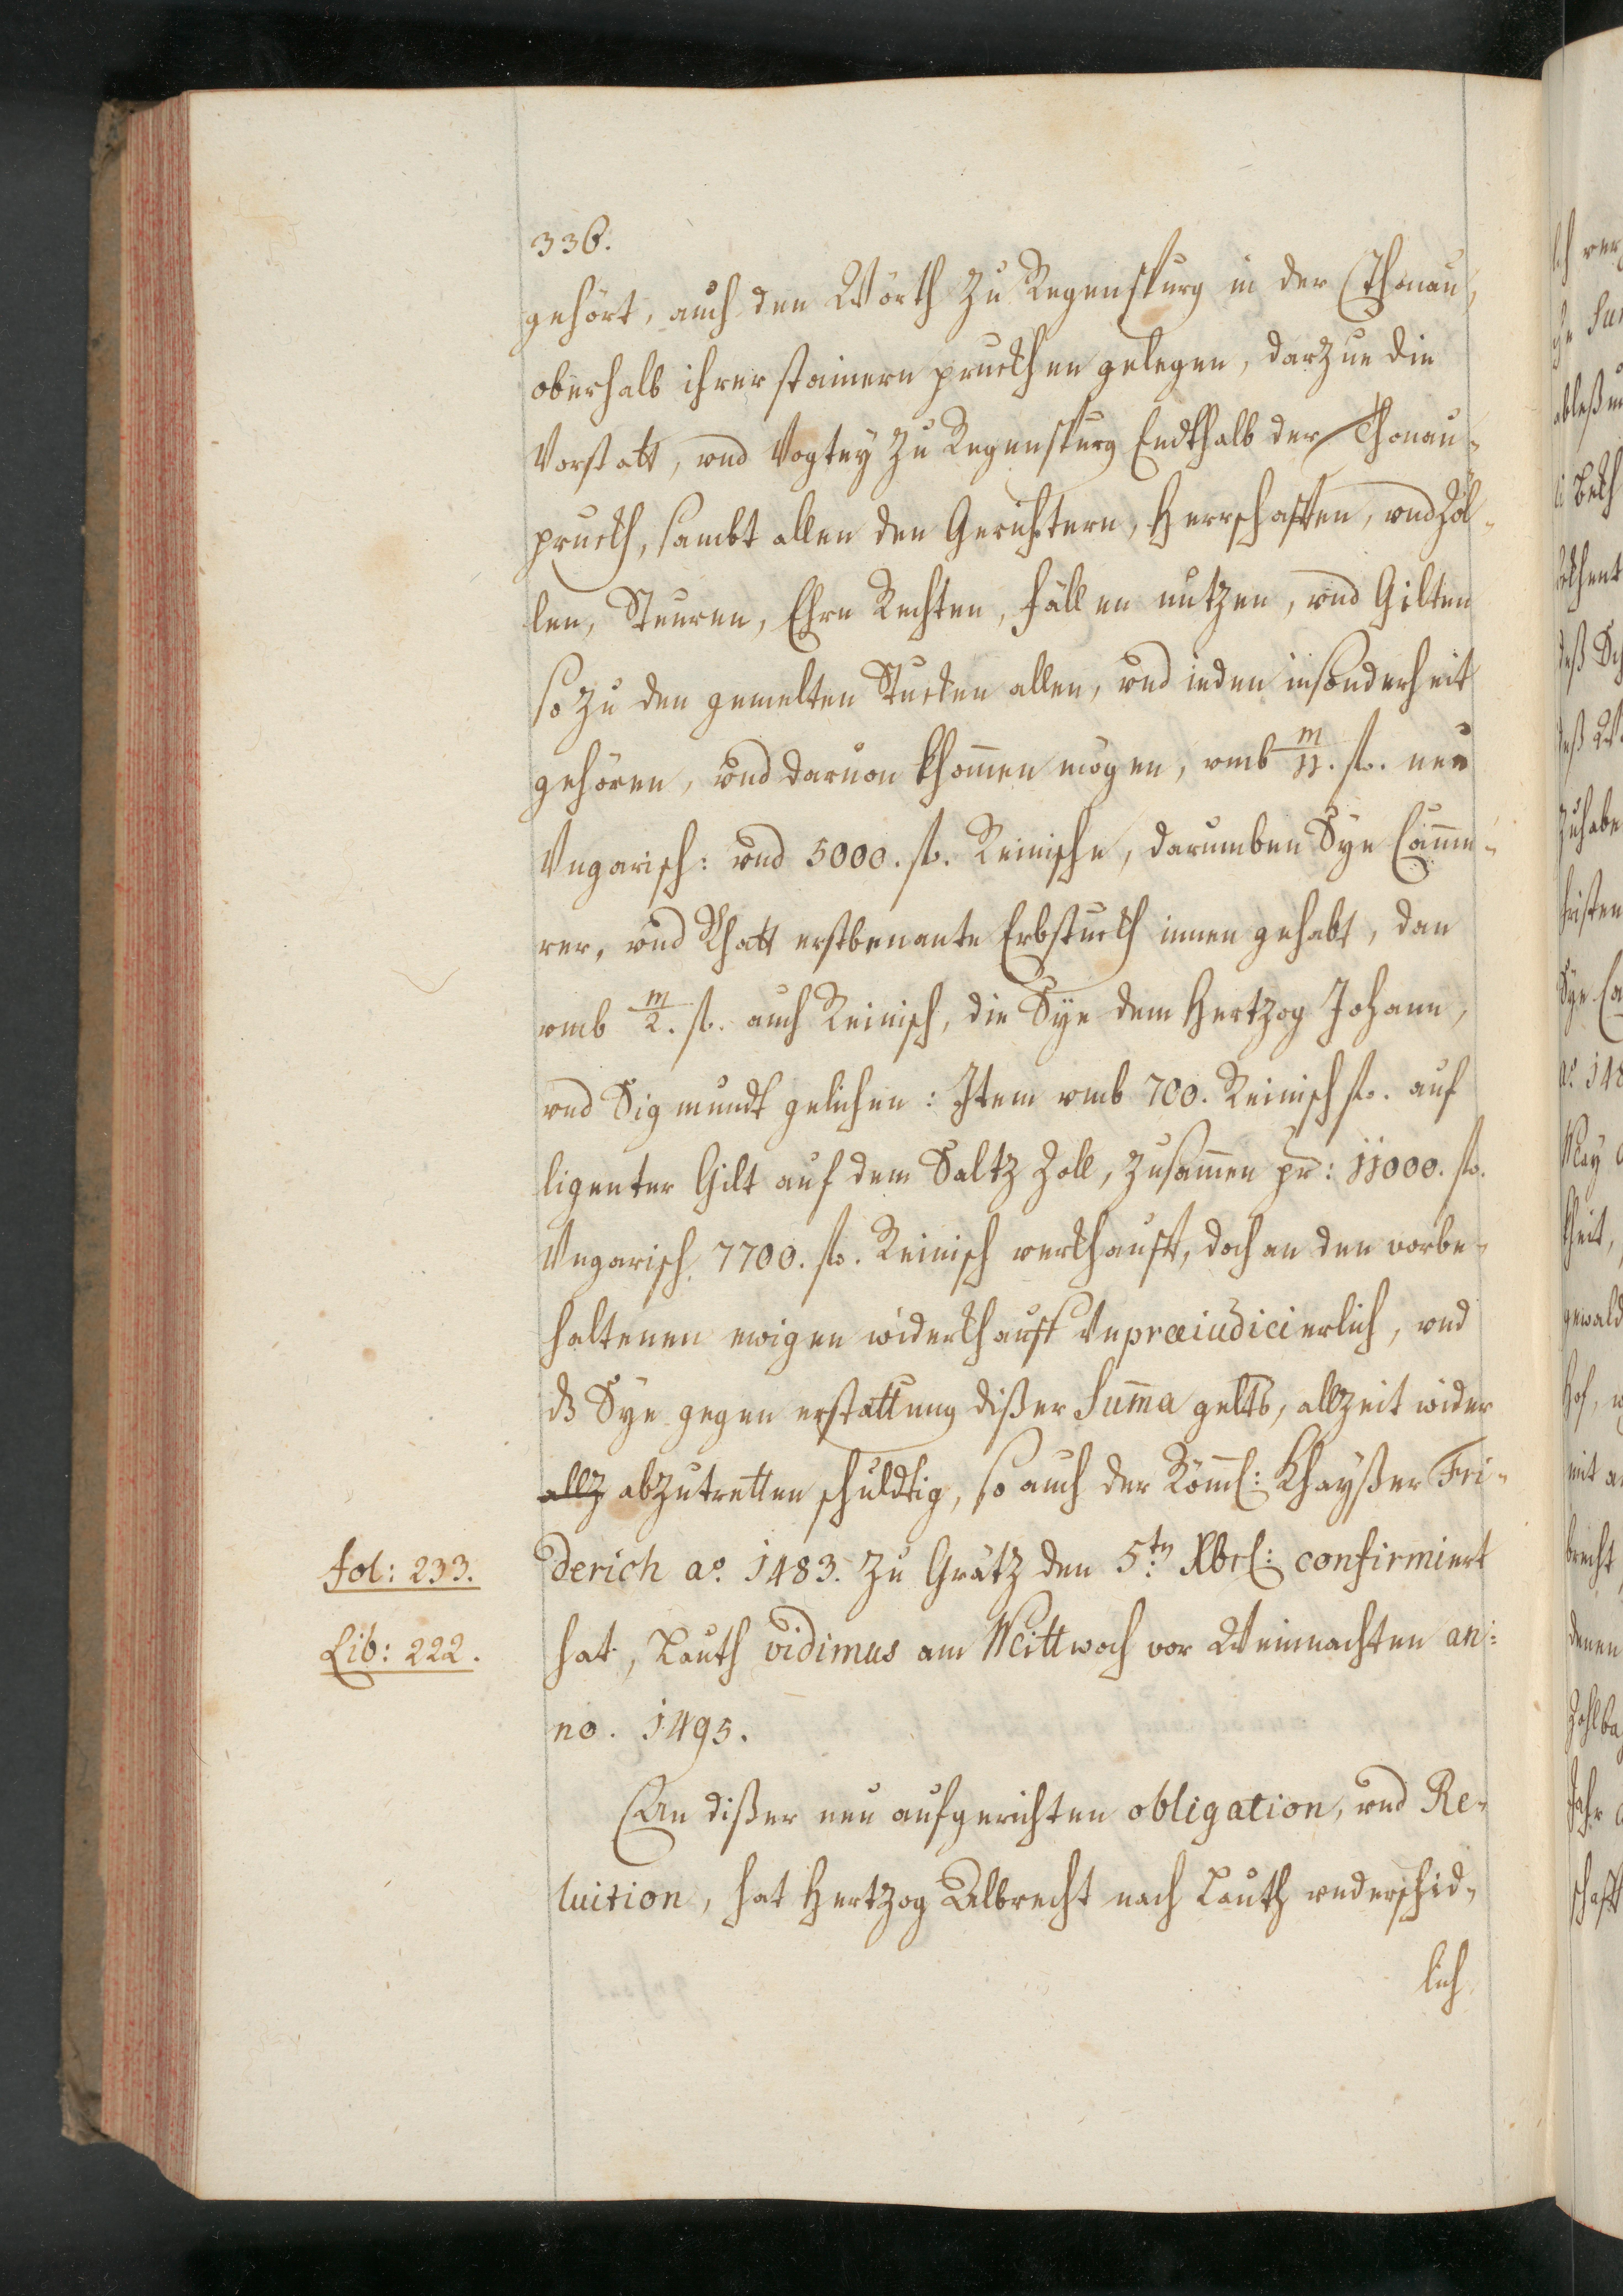 336.
gehört, auch den Wörth zu Regenspurg in der Thonau,
oberhalb ihrer stainern pruckhen gelegen, darzue die
Vorstatt, vnd Vogtey zu Regenspurg Endthalb der Thonau-
pruckh, sambt allen den Gerichtern, Herrschafften, vnd Zöl-
len, Steuren, Ehrn Rechten, fällen nutzen, vnd Gilten
so zu den gemelten Stucken allen, vnd ieden insonderheit
gehören, vnd daruon khommen mögen, vmb m/11. fl. neu
Vngarisch: vnd 5000. fl. Reinische, darumben Sye Camme-
rer, vnd Rhatt erstbenante Erbstuckh innen gehabt, dan
vmb m/2. fl. auch Reinisch, die Sye dem Hertzog Johann,
vnd Sigmundt gelichen: Item vmb 700. Reinisch fl. auf
ligenter Gilt auf dem Saltz Zoll, zusammen pr: 11000. fl.
Vngarisch 7700. fl. Reinisch verkhaufft, doch an den vorbe-
haltenen ewigen widerkhauff Vnpræiudicierlich, vnd
dz Sye gegen erstattung dißer Summa gelts, allzeit wider
allz abzutretten schuldtig, so auch der Röml: Khayßer Fri-
fol: 233. derich aº. 1483. zu Grätz den 5.tn Xbrl: confirmiert
Lib: 222. hat, Lauth vidimus am Mittwoch vor Weinnachten an:
no. 1495.
An dißer neu aufgerichten obligation, vnd Re-
luition, hat Hertzog Albrecht nach Lauth vnderschid-
lich